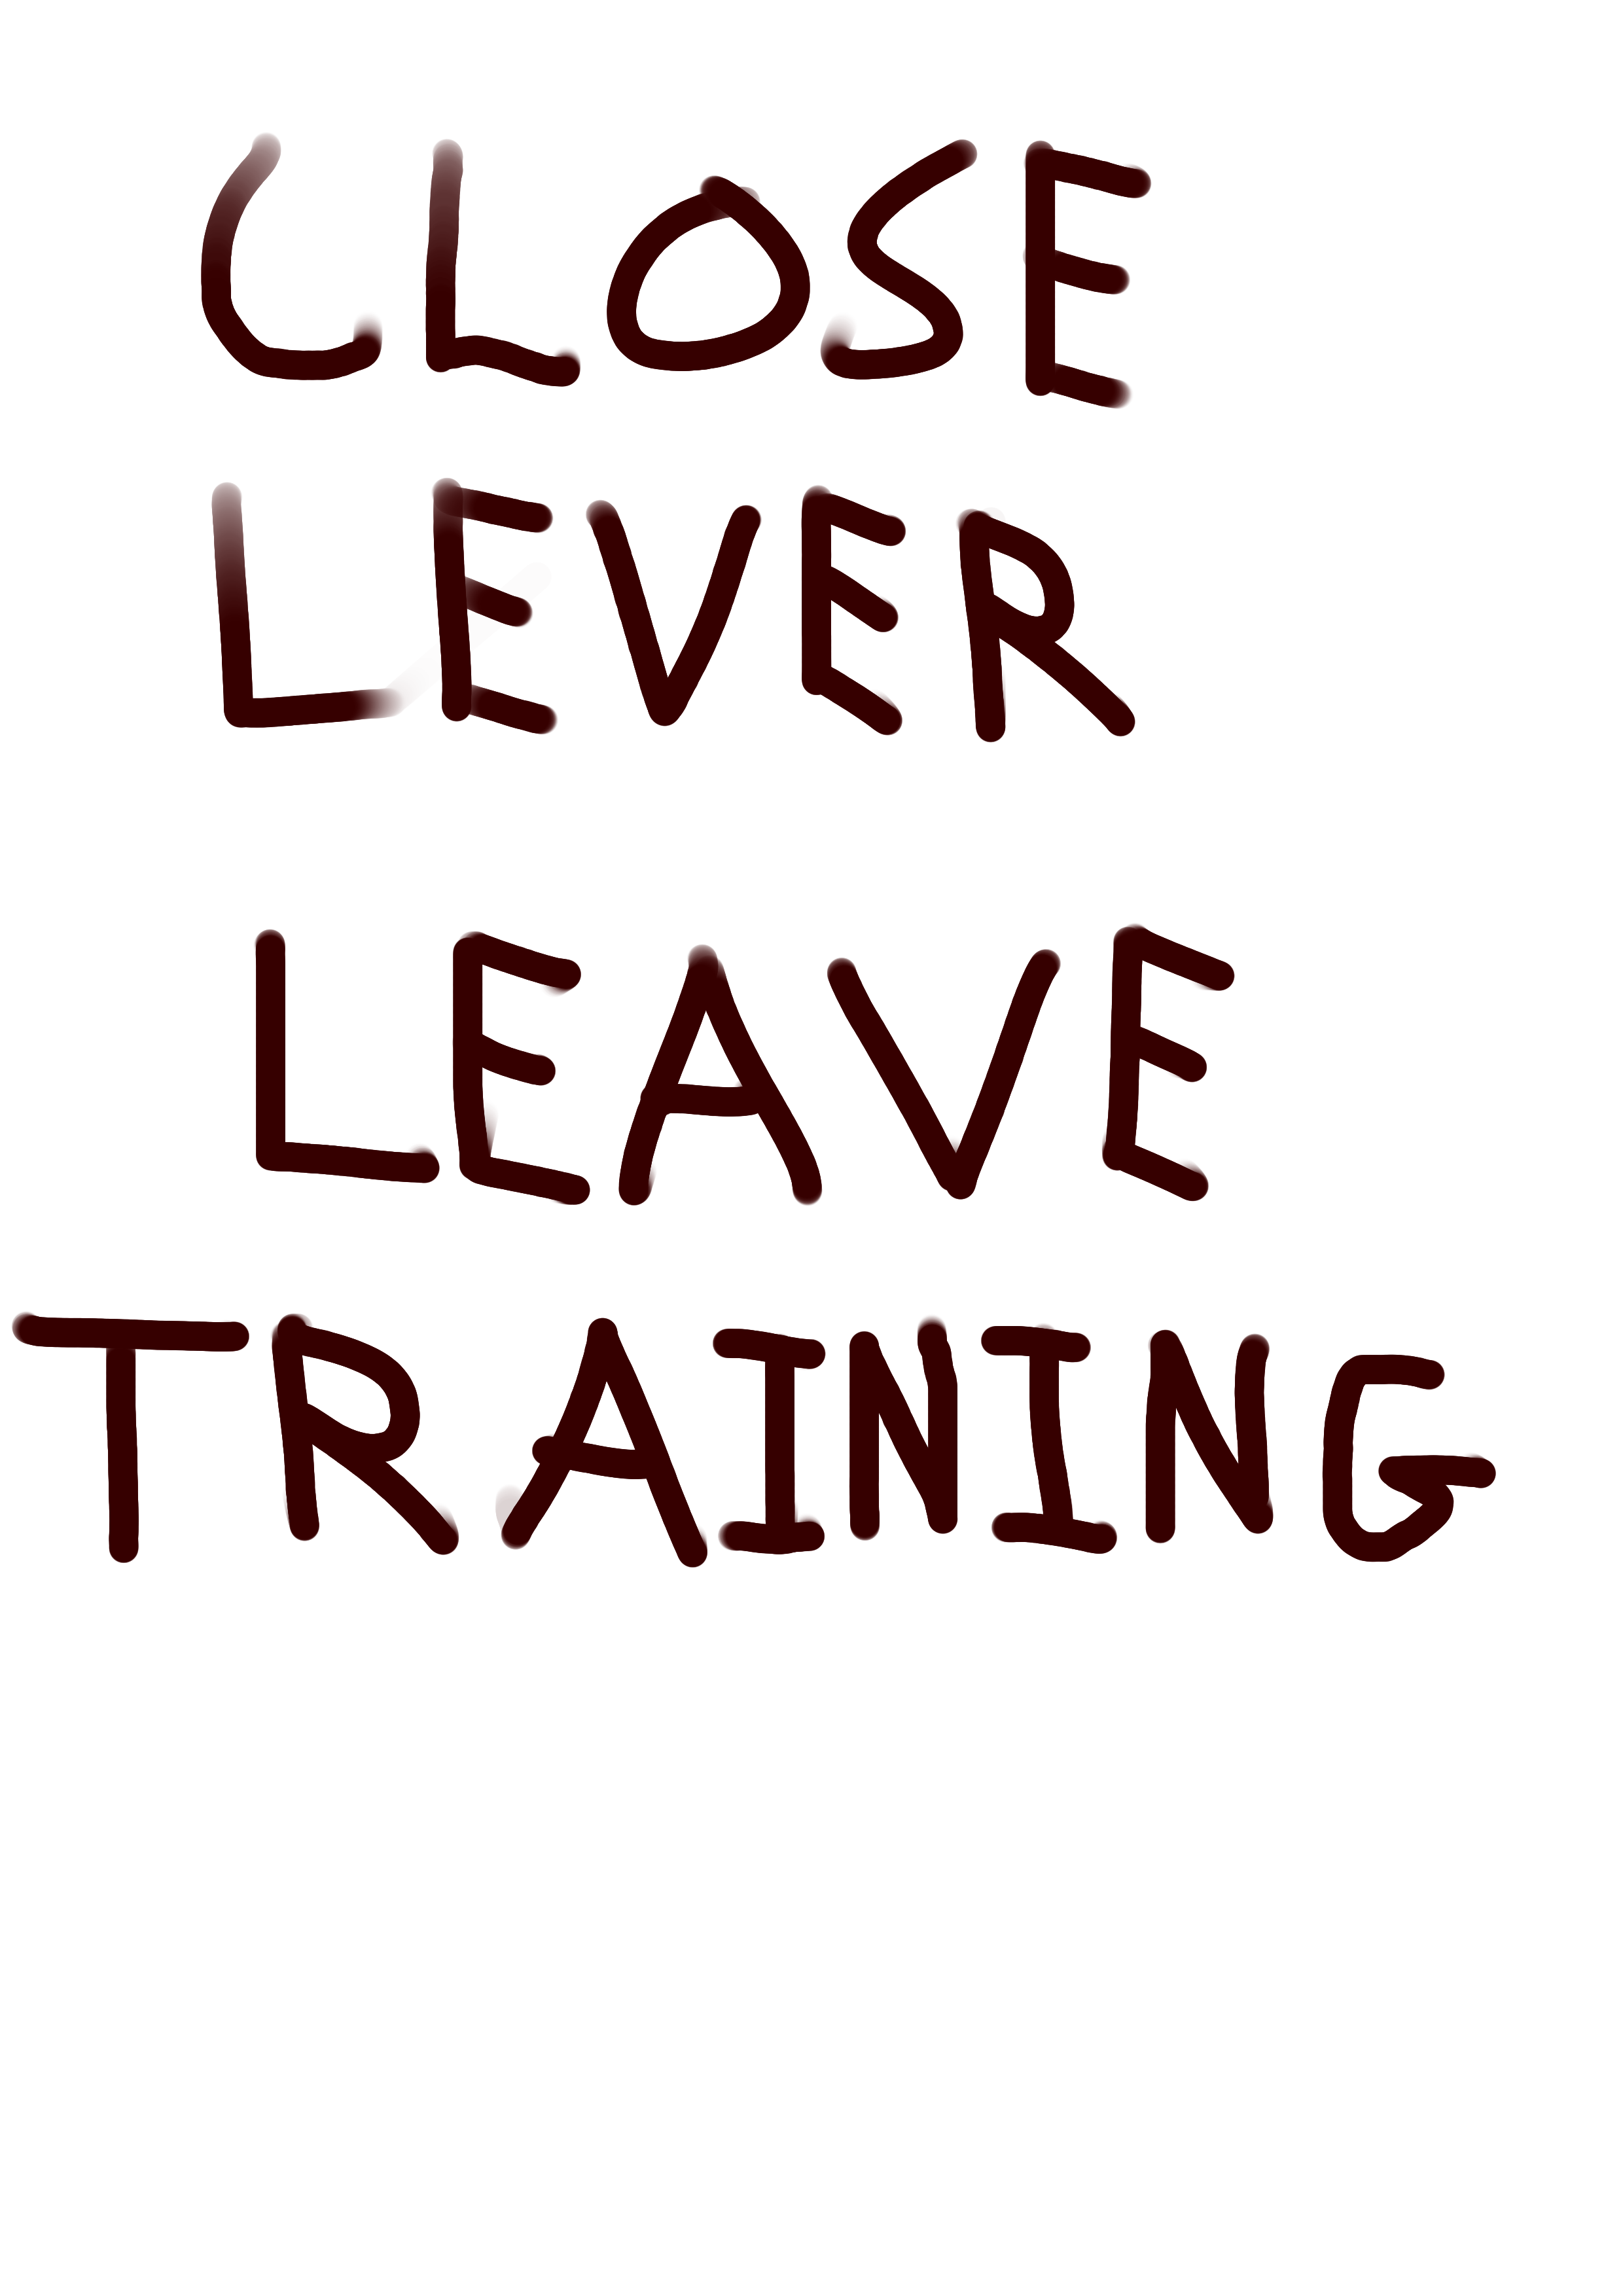 CLOSE
LEVER
LEAVE
TRAINING